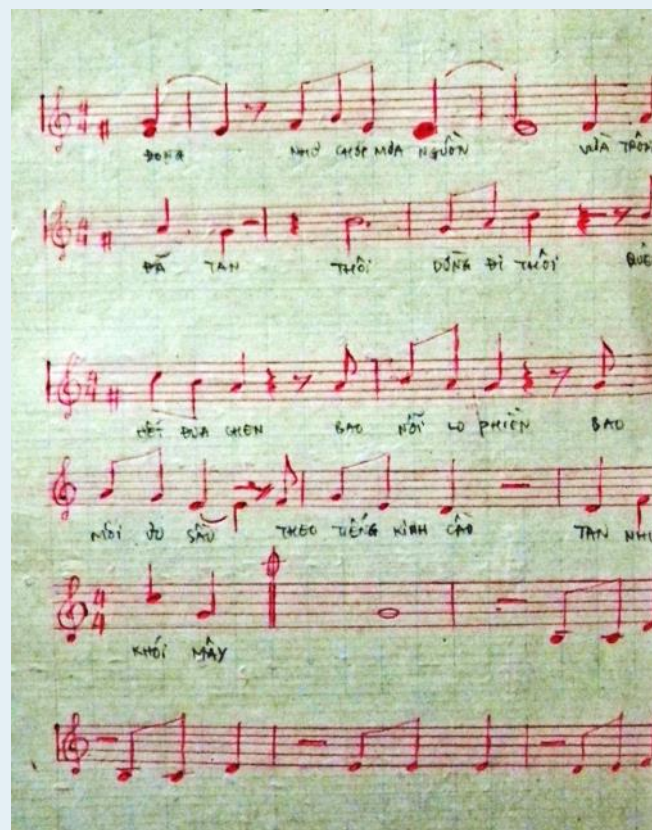 ĐONG NHƯ CHÓP MƯA NGUỒN VỪA TRÔN
ĐÃ TAN THÔI DỪNG ĐI THÔI
HẾT ĐUA CHEN BAO NỖI LO PHIỀN BAO
MỐI ƯU SẦU THEO TIẾNG KINH CẦU TAN NHƯ
KHÓI MÂY